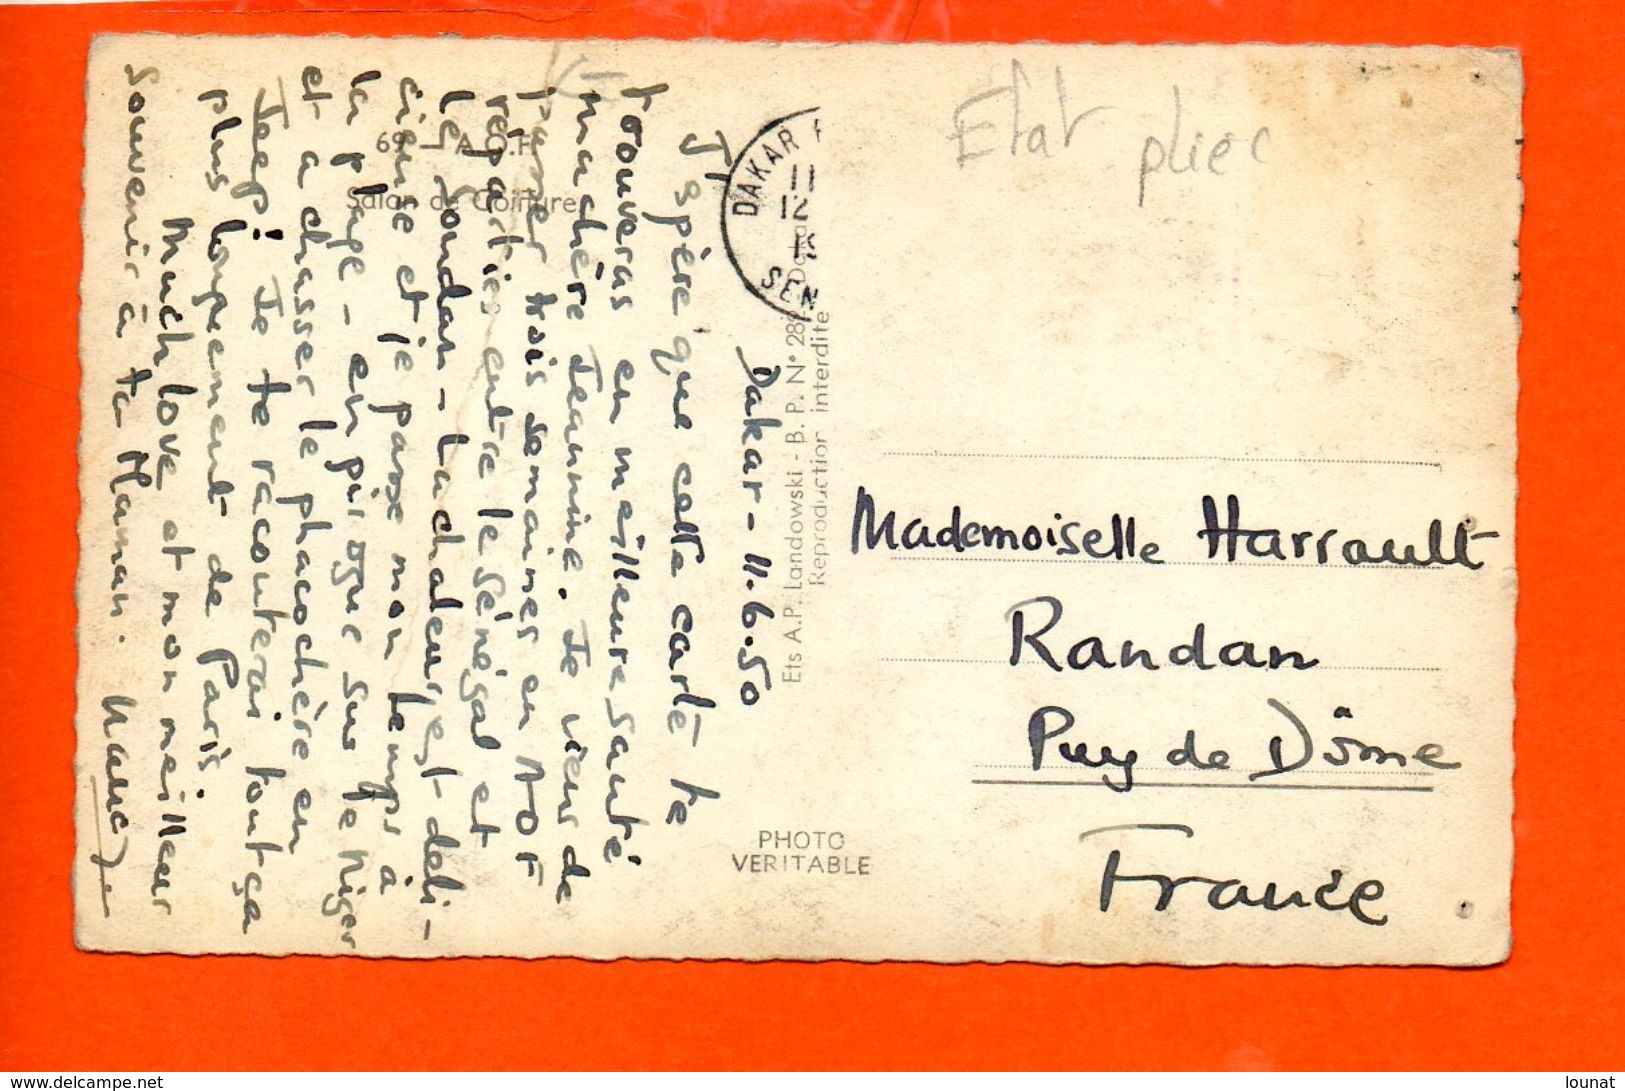 Dakar - 11.6.50
J'espère que cette carte te
trouveras en meilleure santé
ma chère Jeannine. Je viens de
passer trois semaines en AOF
réparties entre le Sénégal et
le Soudan - La chaleur est déli-
cieuse et je passe mon temps à
la plage - en pirogue sur le Niger
et a chasser le phacochère en
Jeep! Je te raconterai tout ça
plus longuement de Paris
Much love et mon meilleur
souvenir à ta Maman.
69 - A.O.F.
Salon de Coiffure
Etat plier
DAKAR
11
12
SEN
Ets A.P. Landowski - B. P. N° 289 Dakar
Reproduction interdite
PHOTO
VERITABLE
Mademoiselle Harrault
Randan
Puy de Dôme
France
www.delcampe.net
lounat